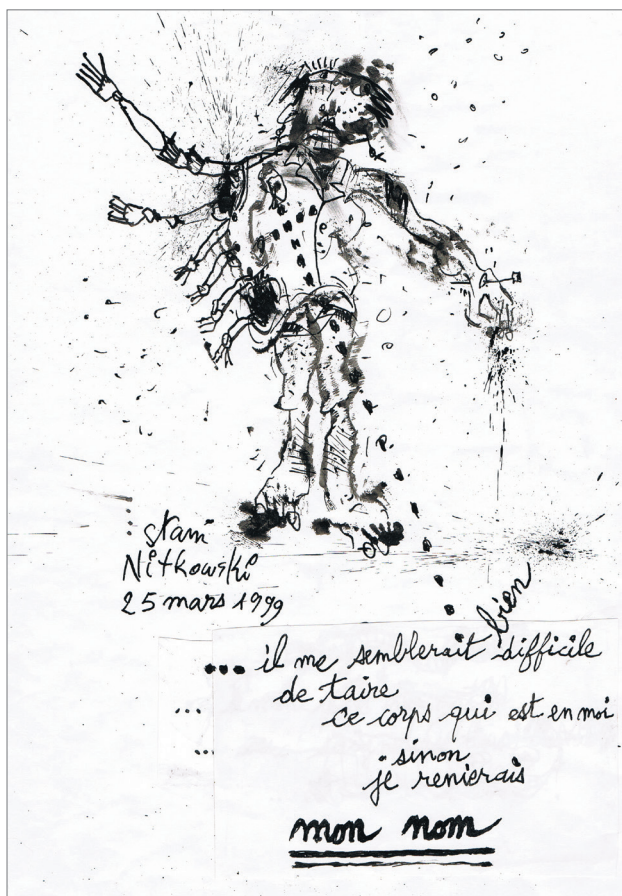 stani
Nitkowski
25 mars 1999
... il me semblerait bien difficile
de taire
ce corps qui est en moi
...
...
sinon
je renierais
mon nom